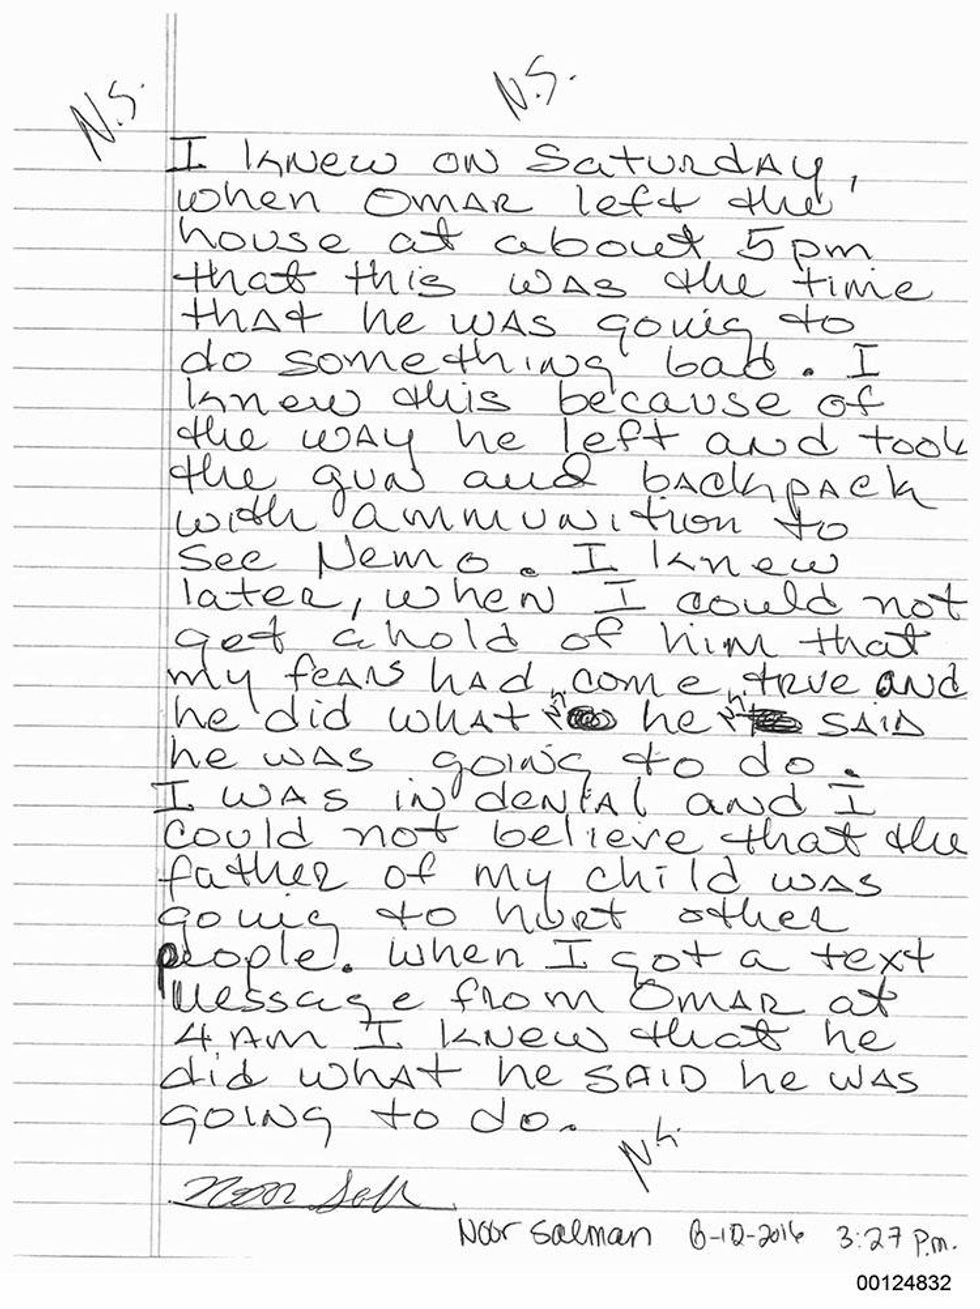 N.S.
N.S.
I knew on Saturday,
when Omar left the
house at about 5pm
that this was the time
that he was going to
do something bad. I
knew this because of
the way he left and took
the gun and backpack
with ammunition to
see Nemo. I knew
later, when I could not
get ahold of him that
my fears had come true and
he did what he said
he was going to do.
I was in denial and I
could not believe that the
father of my child was
going to hurt other
people. When I got a text
message from Omar at
4 AM I knew that he
did what he said he was
going to do.
N.S.
Noor Salman 6-12-2016 3:27 P.m.
00124832